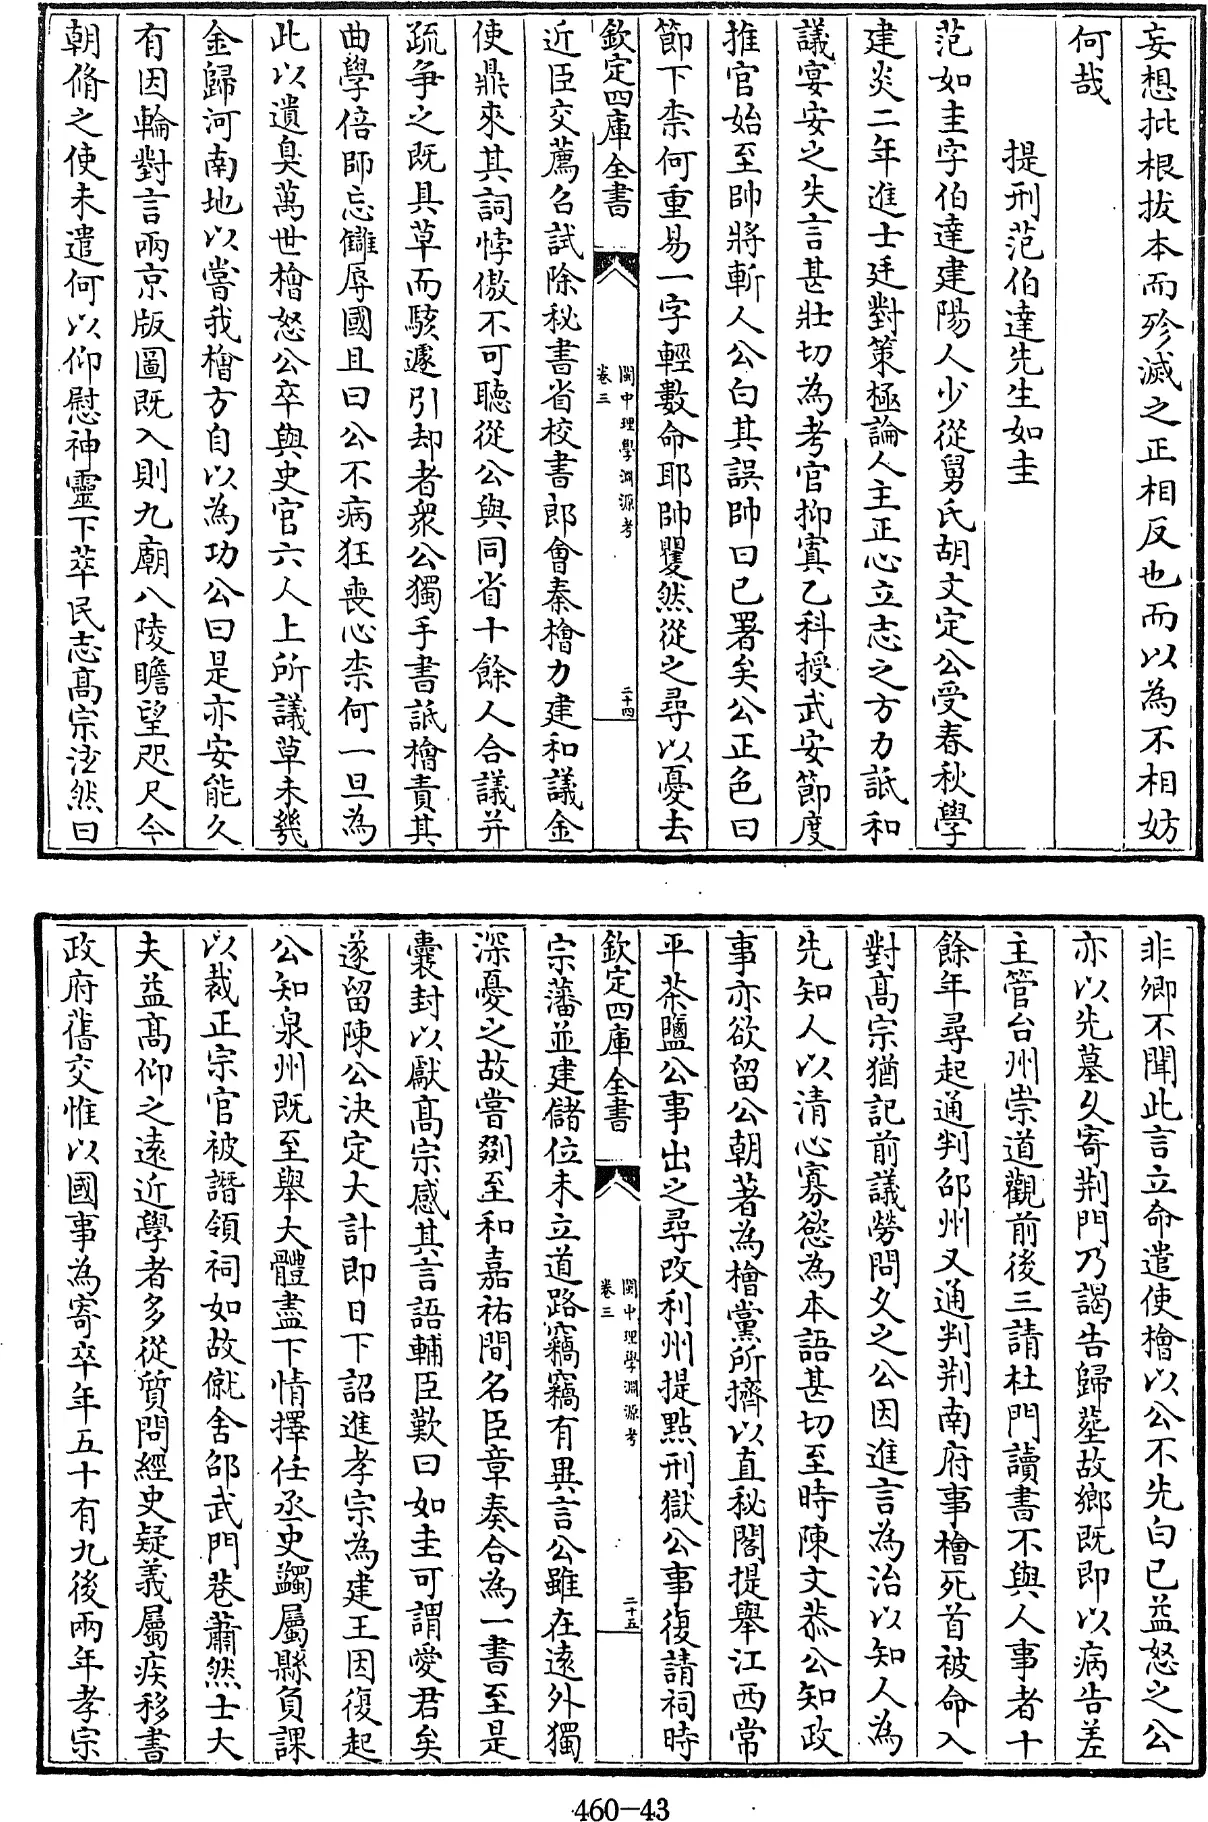 妄想批根拔本而殄滅之正相反也而以為不相妨
何哉
提刑范伯達先生如圭
范如圭字伯達建陽人少從舅氏胡文定公受春秋學
建炎二年進士廷對策極論人主正心立志之方力詆和
議宴安之失言甚壯切為考官抑寘乙科授武安節度
推官始至帥將斬人公白其誤帥曰已署矣公正色曰
節下柰何重易一字輕數命耶帥矍然從之尋以憂去
欽定四庫全書
閩中理學淵源考
卷三
二十四
近臣交薦名試除秘書省校書郎會秦檜力建和議金
使鼎來其詞悖傲不可聽從公與同省十餘人合議并
疏爭之既具草而駭遽引却者衆公獨手書詆檜責其
曲學倍師忘讎辱國且曰公不病狂喪心柰何一旦為
此以遺臭萬世檜怒公卒與史官六人上所議草未幾
金歸河南地以嘗我檜方自以為功公曰是亦安能久
有因輪對言兩京版圖既入則九廟八陵瞻望咫尺今
朝脩之使未遣何以仰慰神靈下萃民志高宗泫然曰
非卿不聞此言立命遣使檜以公不先白已益怒之公
亦以先墓久寄荆門乃謁告歸塟故鄉既即以病告差
主管台州崇道觀前後三請杜門讀書不與人事者十
餘年尋起通判邵州又通判荆南府事檜死首被命入
對高宗猶記前議勞問久之公因進言為治以知人為
先知人以清心寡慾為本語甚切至時陳文恭公知政
事亦欲留公朝著為檜黨所擠以直秘閣提舉江西常
平茶鹽公事出之尋改利州提點刑獄公事復請祠時
欽定四庫全書
閩中理學淵源考
卷三
二十五
宗藩並建儲位未立道路竊竊有異言公雖在遠外獨
深憂之故嘗剟至和嘉祐間名臣章奏合為一書至是
囊封以獻高宗感其言語輔臣歎曰如圭可謂愛君矣
遂留陳公決定大計即日下詔進孝宗為建王因復起
公知泉州既至舉大體盡下情擇任丞史蠲屬縣負課
以裁正宗官被譖領祠如故僦舍邵武門巷蕭然士大
夫益高仰之遠近學者多從質問經史疑義屬疾移書
政府舊交惟以國事為寄卒年五十有九後兩年孝宗
460-43